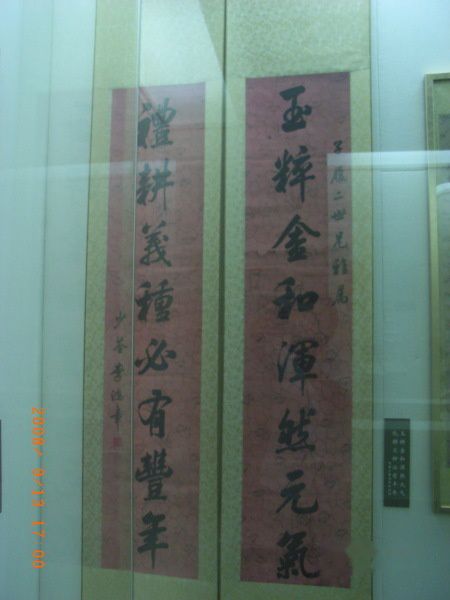 玉粹金和渾然元氣
二世兄雅屬
禮耕義種必有豐年
少荃李鴻章
2008/ 9/13 17:00